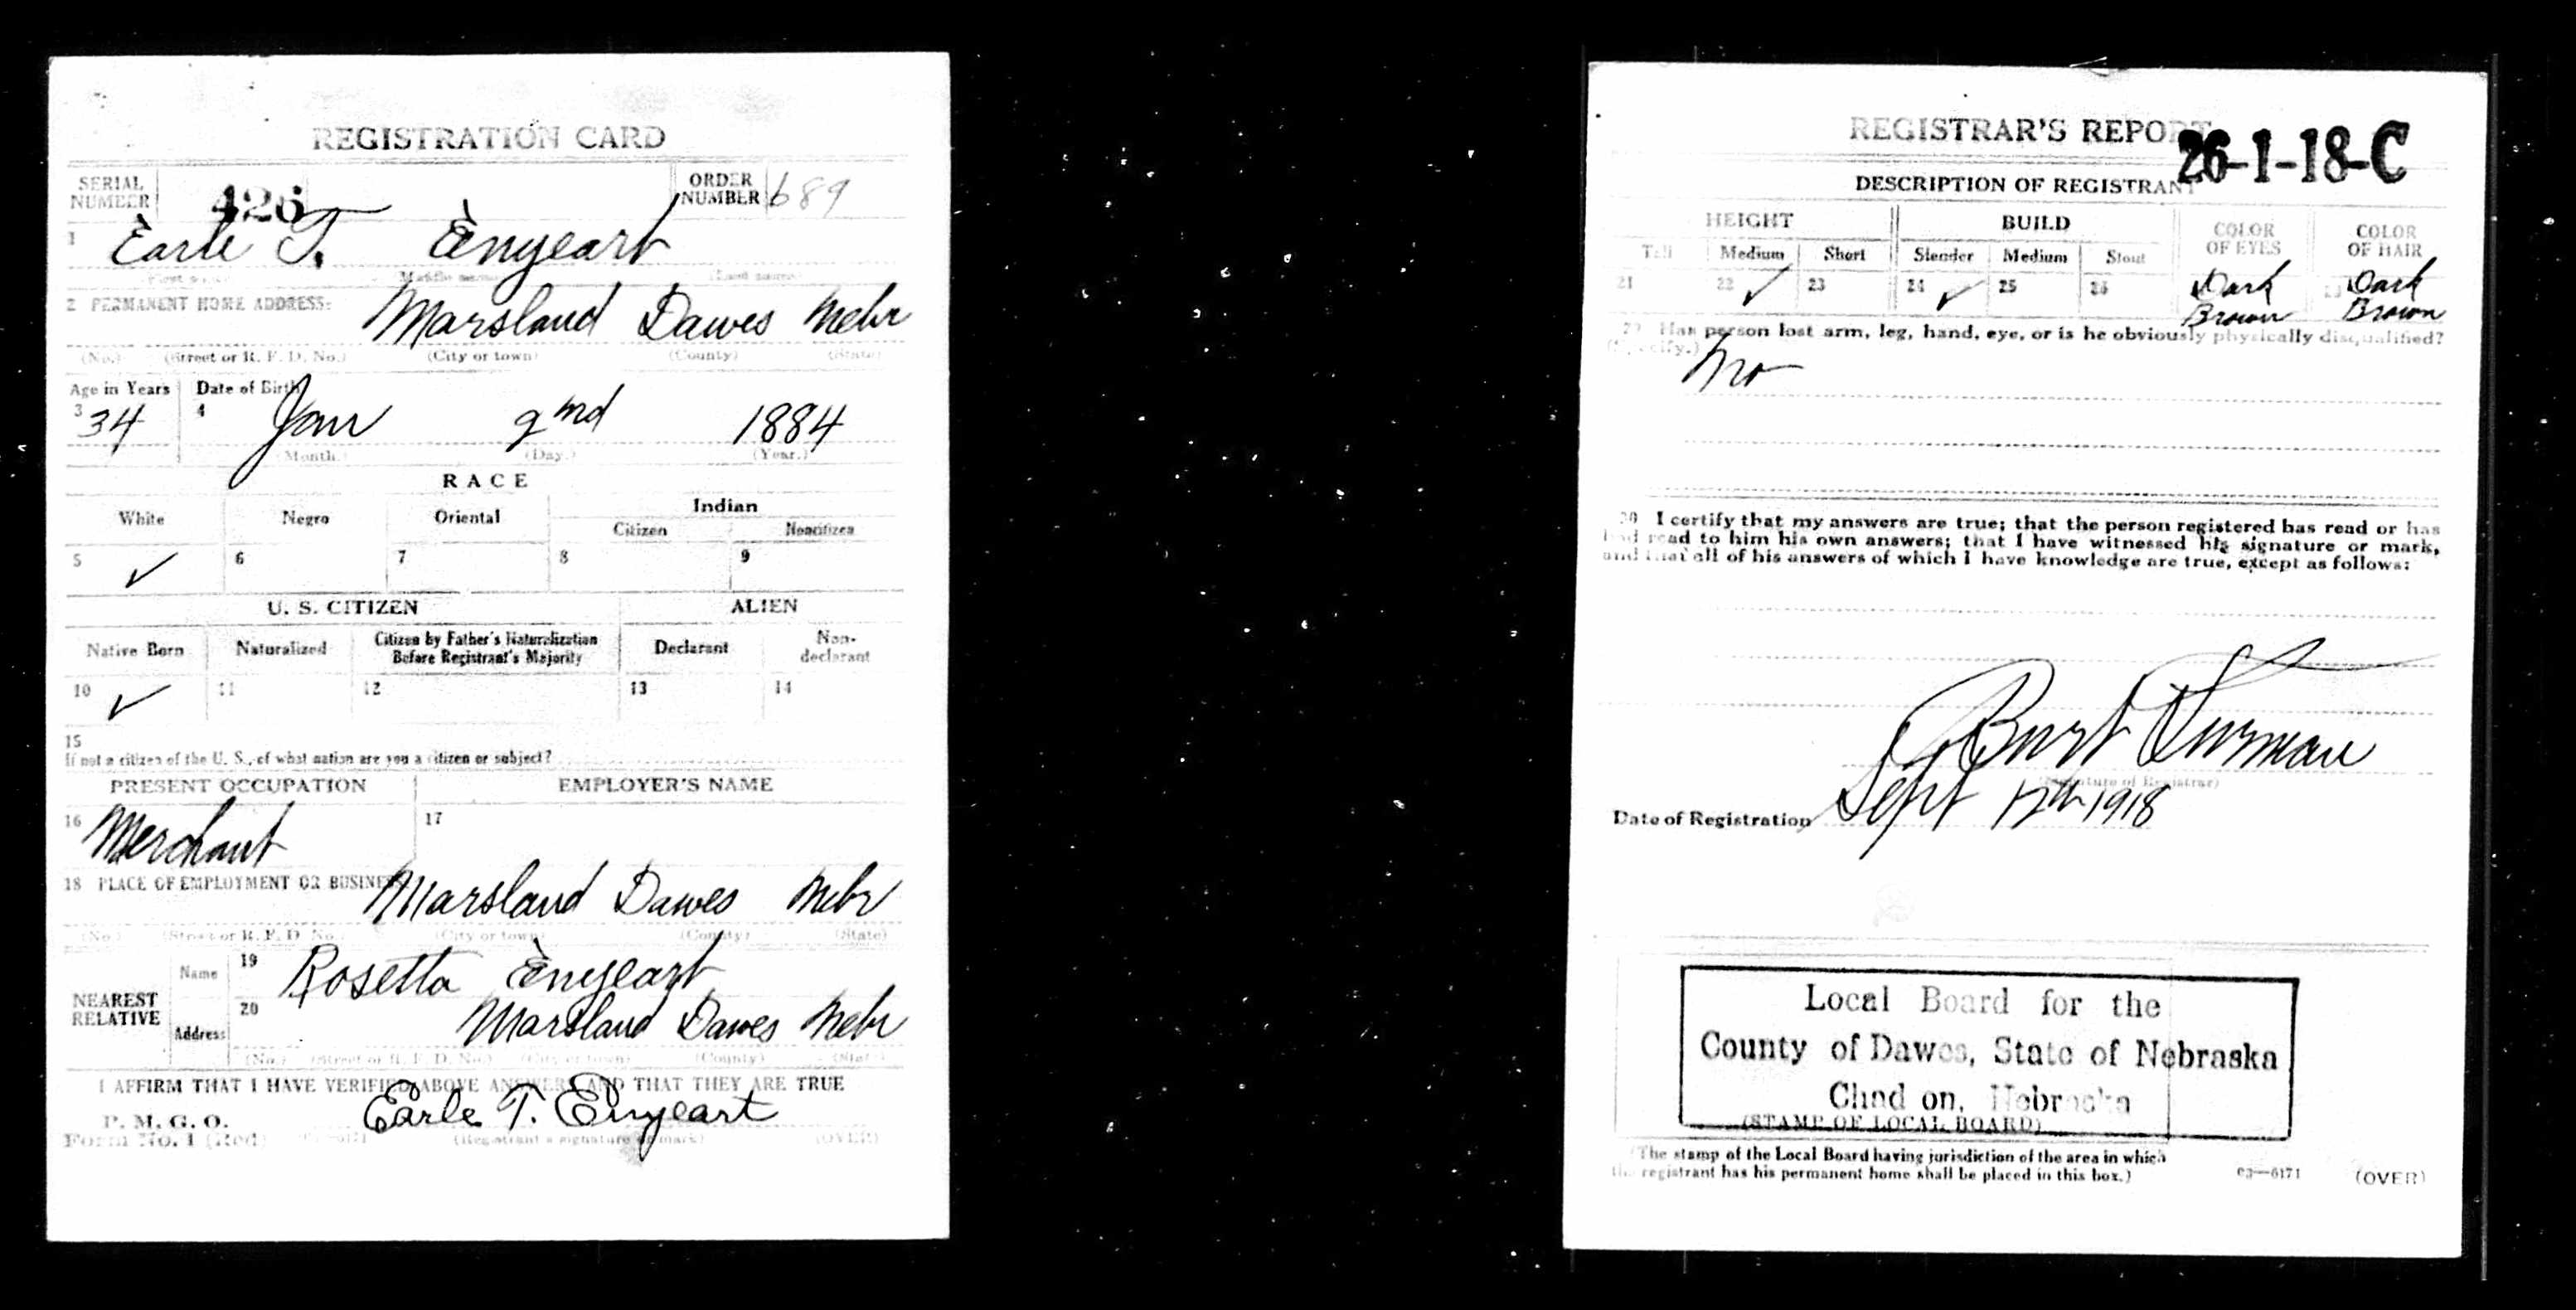 REGISTRATION CARD
SERIAL NUMBER 426 ORDER NUMBER 689
1 Earle T. Enyeart
(First name) (Middle name) (Last name)
2 PERMANENT HOME ADDRESS:
Marsland Dawes Nebr
(No.) (Street or R. F. D. No.) (City or town) (County) (State)
Age in Years Date of Birth
3 34 4 Jan 2nd 1884
(Month.) (Day.) (Year.)
RACE
White Negro Oriental Indian
Citizen Noncitizen
5 ✓ 6 7 8 9
U. S. CITIZEN ALIEN
Native Born Naturalized Citizen by Father's Naturalization Before Registrant's Majority Declarant Non-declarant
10 ✓ 11 12 13 14
15
If not a citizen of the U. S., of what nation are you a citizen or subject?
PRESENT OCCUPATION EMPLOYER'S NAME
16 Merchant 17
18 PLACE OF EMPLOYMENT OR BUSINESS:
Marsland Dawes Nebr
(No.) (Street or R. F. D. No.) (City or town) (County) (State)
NEAREST RELATIVE
Name 19 Rosetta Enyeart
Address 20 Marsland Dawes Nebr
(No.) (Street or R. F. D. No.) (City or town) (County) (State)
I AFFIRM THAT I HAVE VERIFIED ABOVE ANSWERS AND THAT THEY ARE TRUE
P. M. G. O.
Form No. 1 (Red) Earle T. Enyeart
(Registrant's signature or mark) (OVER)
REGISTRAR'S REPORT
26-1-18-C
DESCRIPTION OF REGISTRANT
HEIGHT BUILD COLOR OF EYES COLOR OF HAIR
Tall Medium Short Slender Medium Stout
21 22 ✓ 23 24 ✓ 25 26 Dark Brown Dark Brown
29 Has person lost arm, leg, hand, eye, or is he obviously physically disqualified?
(Specify.) No
30 I certify that my answers are true; that the person registered has read or has
had read to him his own answers; that I have witnessed his signature or mark,
and that all of his answers of which I have knowledge are true, except as follows:
Burt Furman
(Signature of Registrar)
Date of Registration Sept 12th 1918
Local Board for the
County of Dawes, State of Nebraska
Chadron, Nebraska
(STAMP OF LOCAL BOARD)
(The stamp of the Local Board having jurisdiction of the area in which
the registrant has his permanent home shall be placed in this box.)
03—6171 (OVER)